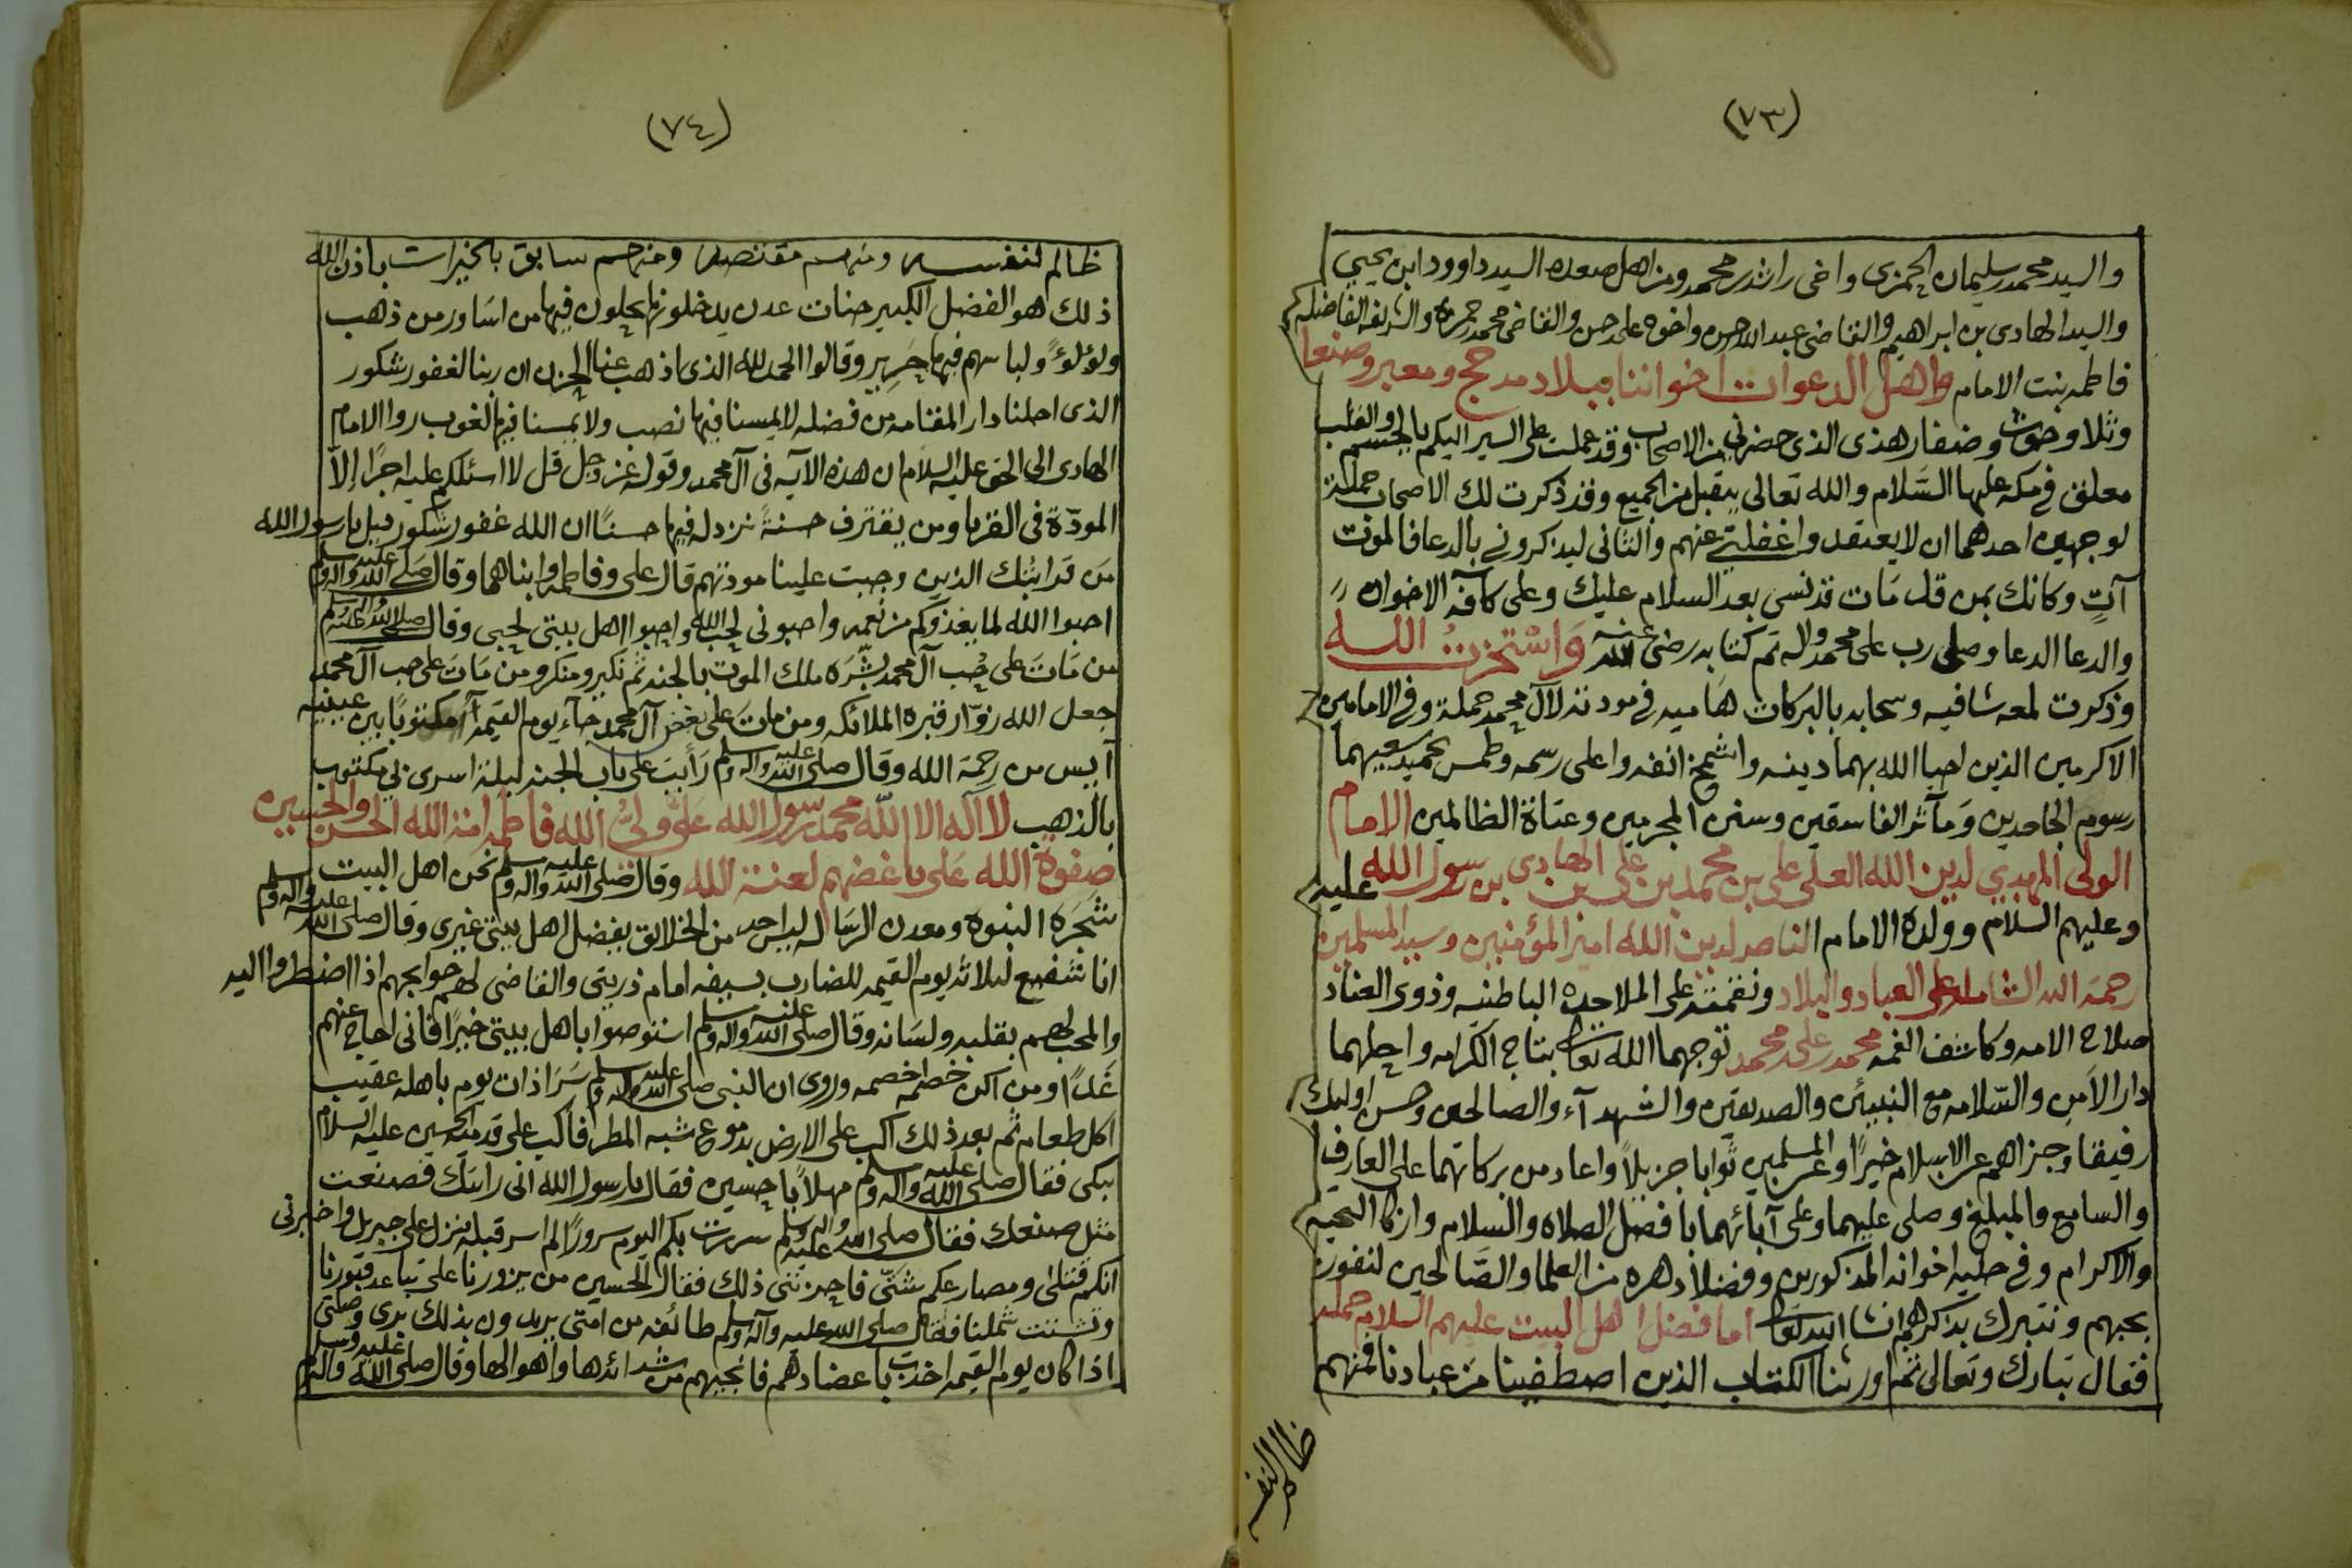 (٧٣)
والسيد محمد بن سليمان الحمزى واخى راشد بن محمد ومن اهل صعده السيد داوود ابن يحيي
والسيد الهادى بن ابراهيم والقاضى عبدالله بن حسن واخوه على بن حسن والقاضى محمد بن حمزه والشريفه الفاضله
فاطمه بنت الامام واهل الدعوات اخواننا ببلاد مدحج ومعبر وصنعا
وثلا وحوث وضفار هذى الذى حضرني من الاصحاب وقد عملت على السير اليكم بالجسم والقلب
معلق في مكه عليها السلام والله تعالى يتقبل من الجميع وقد ذكرت لك الاصحاب جملة
لوجهين احدهما ان لا يعتقدوا غفلتي عنهم والثانى ليذكرونى بالدعا فالموت
آتٍ وكانك بمن قد مَات قد نسى بعد السلام عليك وعلى كافة الاخوان
والدعا الدعا وصلى رب على محمد واله تم كتابه رضى الله عنه وَاسْتَخَرتُ اللـــه
وذكرت لمعه شافيه وسحابه بالبركات هَاميه في مودته لآل محمد جملة وفي الامامين
الاكرمين الذين احيا الله بهما دينه واشمخ انفه واعلى رسمه وطمس بحميد سعيهما
رسوم الجاحدين وَمآثر الفاسقين وسنن المجرمين وعتاة الظالمين الامام
الولى المهدي لدين الله العلى على بن محمد بن على الهادى بن رسول الله عليه
وعليهم السلام وولده الامام الناصر لدين الله امير المؤمنين وسيد المسلمين
رحمة الله الشامله على العباد والبلاد ونقمته على الملاحده الباطنيه وذوى العناد
صلاح الامه وكاشف الغمه محمد بن على بن محمد توجهما الله تعالى بتاج الكرامه واحلهما
دار الأمن والسّلامه مع النبيئين والصديقين والشهدآء والصالحين وحسن اوليك
رفيقا وجزاهم عن الاسلام خيرًا وعن المسلمين ثوابا جزيلاً واعاد من بركاتهما على العارف
والسامع والمبلغ وصلى عليهما وعلى آبائهما بافضل الصلاه والسلام وازكا التحيه
والاكرام وفي حليه اخوانه المذكورين وفضلا دهره من العلما والصّالحين لنفوز
بحبهم ونتبرك بذكرهم انشا الله تعالى اما فضل اهل البيت عليهم السلام جمله
فقال تبارك وتعالى ثم اورثنا الكتاب الذين اصطفينا من عبادنا فمنهم
ظالم لنفسه
(٧٤)
ظالم لنفسه ومنهم مقتصد ومنهم سابق بالخيرات باذن الله
ذلك هو الفضل الكبير جنات عدن يدخلونها يحلون فيها من اسَاور من ذهب
ولؤلؤً ولباسهم فيها حَرِير وقالوا الحمد لله الذى اذهب عنا الحزن ان ربنا لغفور شكور
الذى احلنا دار المقامه من فضله لا يمسنا فيها نصب ولا يمسنا فيها لغوب روا الامام
الهادى الى الحق عليه السلام ان هذه الآيه فى آل محمد وقوله عز وجل قل لا اسئلكم عليه اجرًا إلاّ
المودّة فى القربا ومن يقترف حسنةً نزد له فيها حسنًا ان الله غفور شكور قيل يا رسول الله
مَن قرابتك الذين وجبت علينا مودتهم قال على وفاطمه وابناهما وقال صَلى الله عليه واله وسلم
احبوا الله لما يغذوكم من نعمه واحبونى لحب الله واحبوا اهل بيتى لحبى وقال صلى الله عليه واله وسلم
من مَات على حُب آل محمد بشَّرَه ملك الموت بالجنه ثم نكير ومنكر ومن مَات على حب آل محمد
جعل الله زوّار قبره الملائكه ومن مات على بغض آل محمد جآء يوم القيمه مكتوبًا بين عينيه
آيس من رحمة الله وقال صلى الله عليه واله وسلم رَأيت على باب الجنه ليلة اسرى بي مكتوب
بالذهب لا اله الا الله محمد رسول الله عَلىٌ ولىُّ الله فاطمه امة الله الحسن والحسين
صفوة الله عَلى باغضهم لعنة الله وقال صلى الله عليه واله وسلم نحن اهل البيت
شجَرة النبوه ومعدن الرسَاله ليس احد من الخلائق يفضل اهل بيتى غيرى وقال صلى الله عليه واله وسلم
انا شفيع لثلاثه يوم القيمه للضارب بسيفه امام ذريتى والقاضى لهم حوايجهم اذا اضطروا اليه
والمحب لهم بقلبه ولسَانه وقال صلى الله عليه واله وسلم استوصوا باهل بيتى خيرًا فانى احاج عنهم
غَدًا ومن اكن خصمه اخصمه وروى ان النبى صلى الله عليه واله وسلم سَرَّ ذات يوم باهله عقيب
اكل طعام ثم بعد ذلك اكب على الارض بدموع شبه المطر فاكب على قدميه الحسين عليه السلام
بكى فقال صلى الله عليه واله وسلم مهلاً يا حسين فقال يا رسول الله انى رايتك فصنعت
مثل صنعك فقال صلى الله عليه واله وسلم سررت بكم اليوم سرورًا لم اسر قبله فنزل على جبريل واخبرنى
انكم قتلىٰ ومصارعكم شتّى فاحزننى ذلك فقال الحسين من يزورنا على تباعد قبورنا
وتشتت شملنا فقال صلى الله عليه وآله وسلم طائفه من امتى يريدون بذلك برى وصلتى
اذا كان يوم القيمه اخذت باعضادهم فانجيهم من شدائدها واهوالها وقال صلى الله عليه واله وسلم